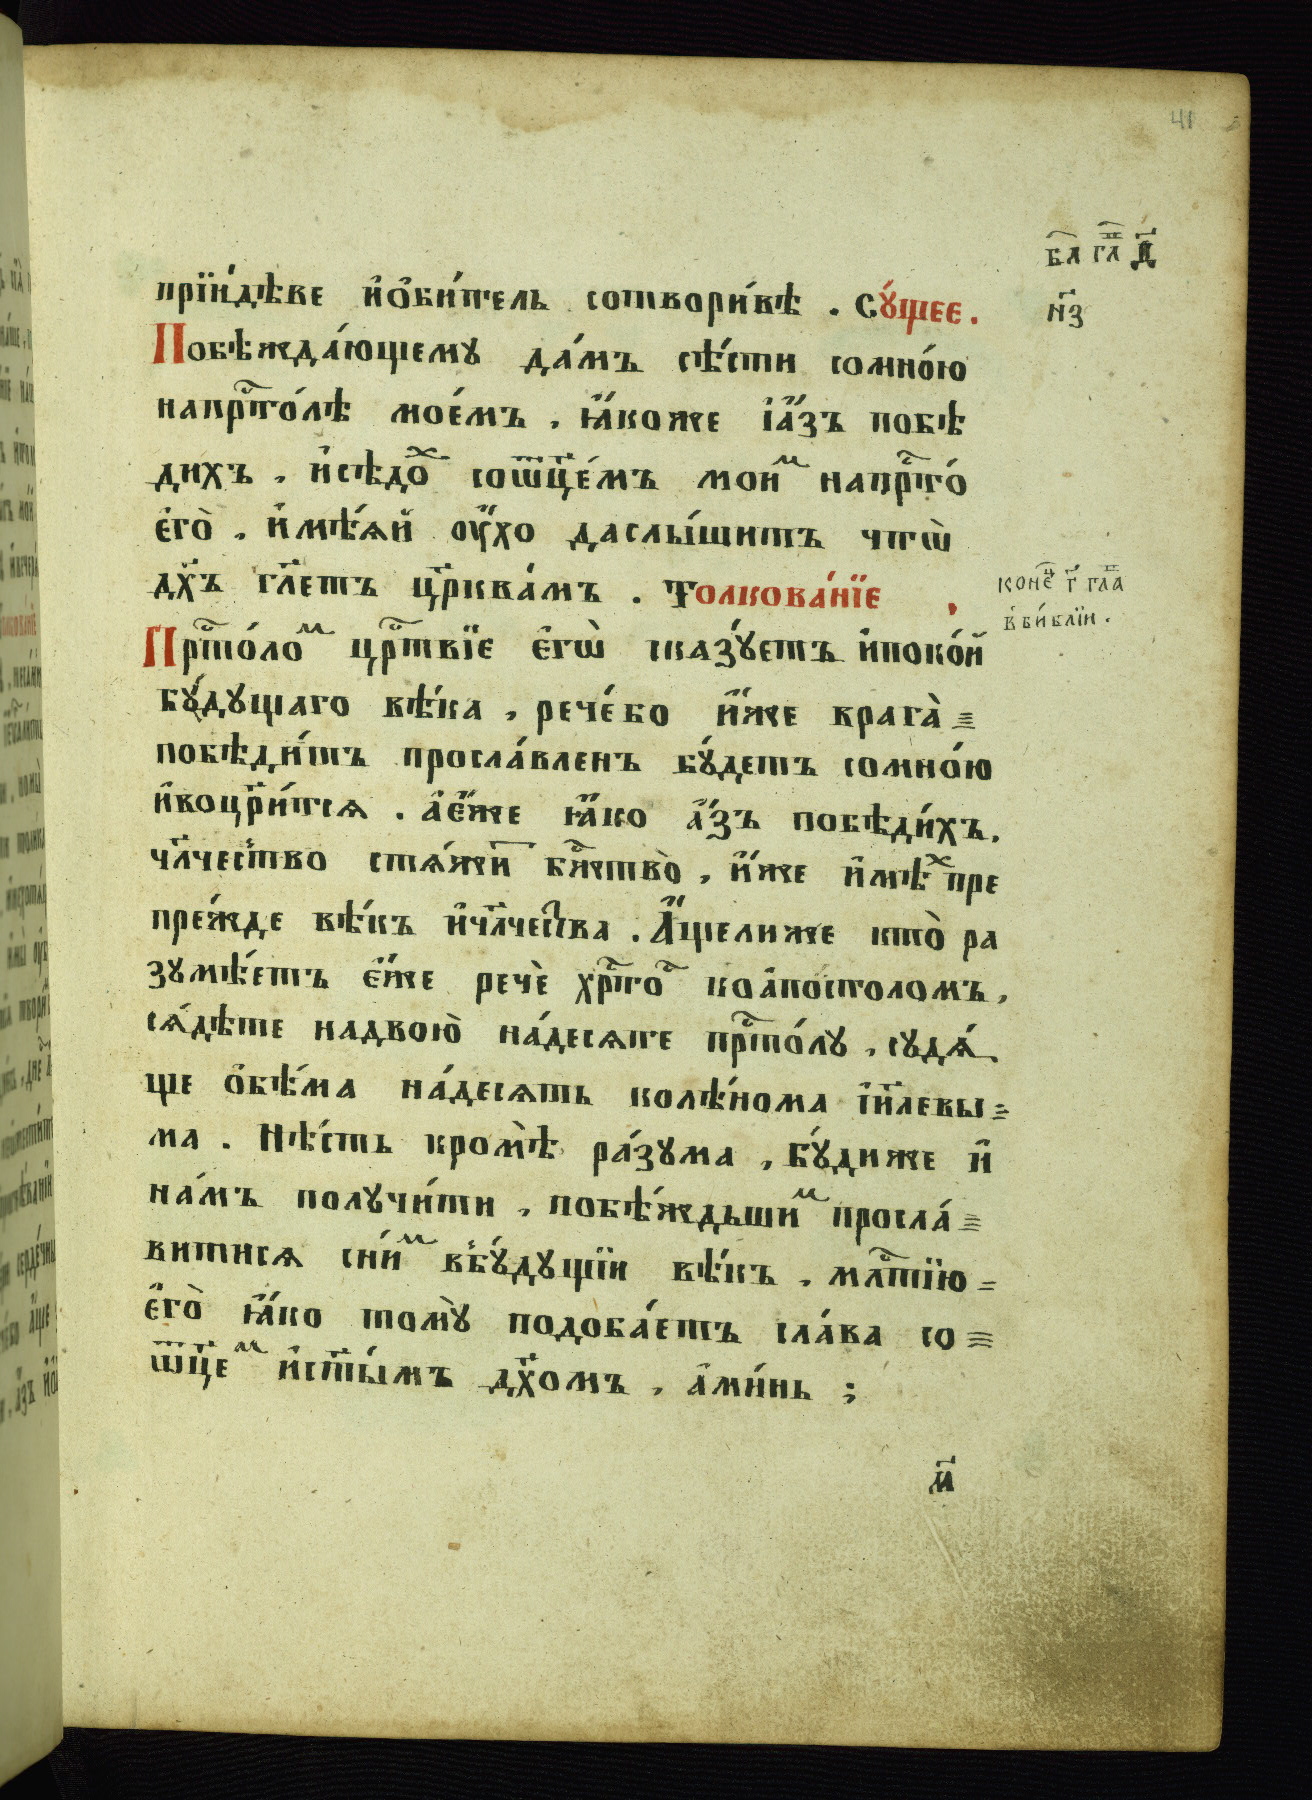 41
бл҃а гл҃а д҃
н҃з
прїи́дѣве и҆ѻ҆би́тель сотвори́вѣ . Су́щее .
Побѣжда́ющему да́мъ сѣ́сти сомно́ю
напрⷭ҇то́лѣ мое́мъ , ꙗ҆́коже і҆а҆́зъ побѣ
дихъ , и҆сѣдоⷯ соѿц҃е́мъ моиⷨ напрⷭ҇то́
є҆го̀ , и҆мѣ́ѧй ѹ҆́хо даслы́шитъ что̀
дх҃ъ гл҃етъ цр҃ква́мъ . Толкова́нїе .
конеⷰ҇ г҃ гл҃а
в̾би́блїи .
Прⷭ҇то́лоⷨ црⷭ҇твїе є҆гѡ̀ сказу́етъ и҆поко́й
бу́дущаго вѣ́ка , рече́бо и҆́же врага̀
побѣди́тъ просла́вленъ бу́детъ сомно́ю
и҆воцр҃и́тсѧ . а҆є҆́же ꙗ҆́ко а҆́зъ побѣди́хъ .
чл҃чество стѧ́жи бж҃ство̀ , и҆́же и҆мѣⷯ пре
пре́жде вѣ́къ и҆чл҃чества . А҆́щелиже кто̀ ра
зумѣ́етъ є҆́же речѐ хрⷭ҇тоⷭ҇ коа҆постоломъ ,
сѧ́дѣте надвою̀ на́десѧте прⷭ҇то́лу , судѧ́
ще ѻ҆бѣ́ма на́десѧть колѣ́нома і҆и҃левы
ма . Нѣ́сть кромѣ̀ ра́зума , бу́диже и҆
на́мъ получи́ти , побѣ́ждьшиⷨ просла́
витисѧ сни́ⷨ в̾бу́дущїи вѣ́къ , млⷭ҇тїю
є҆го̀ ꙗ҆́ко тому̀ подоба́етъ сла́ва со
ѿц҃еⷨ и҆ст҃ы́мъ дх҃омъ , а҆ми́нь ;
м҃а